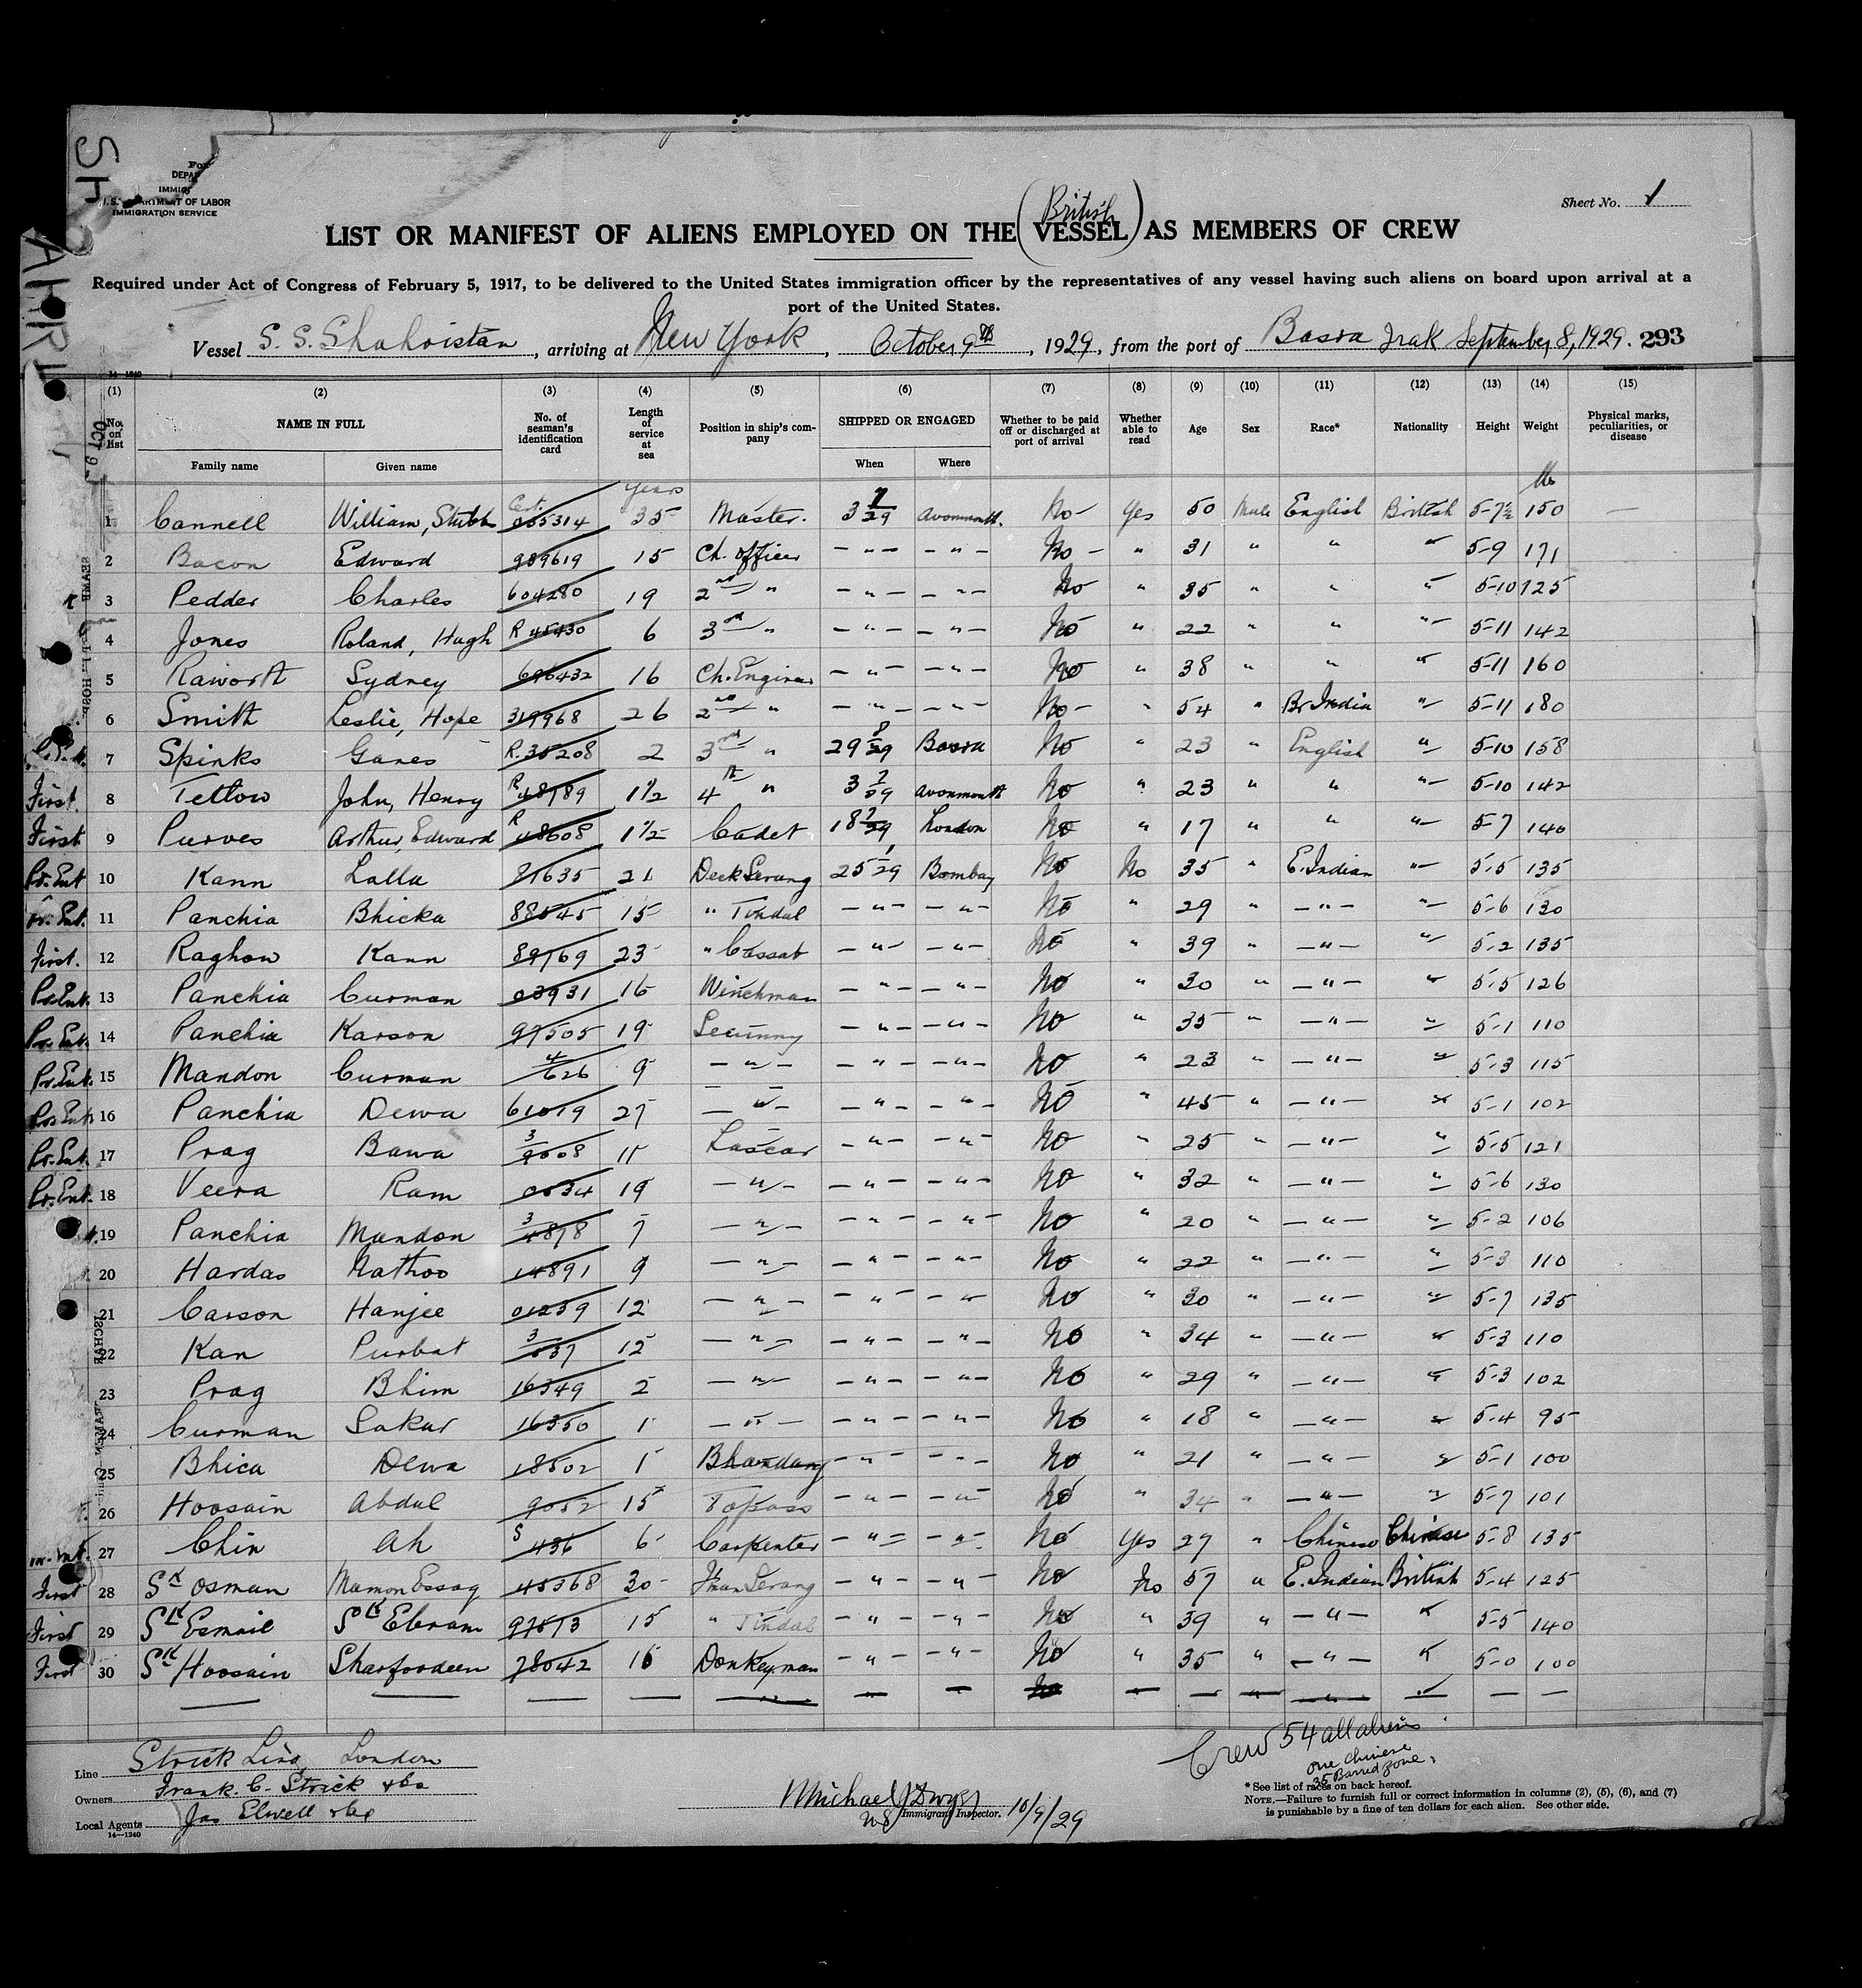 SH
AHRI
For
DEPA
IMMIG
U.S. DEPARTMENT OF LABOR
IMMIGRATION SERVICE
Sheet No. 1
British
LIST OR MANIFEST OF ALIENS EMPLOYED ON THE (VESSEL) AS MEMBERS OF CREW
Required under Act of Congress of February 5, 1917, to be delivered to the United States immigration officer by the representatives of any vessel having such aliens on board upon arrival at a
port of the United States.
Vessel S. S. Shahristan, arriving at New York, October 9th, 1929, from the port of Basra Irak September, 8, 1929. 293
14-1240
(1) (2) (3) (4) (5) (6) (7) (8) (9) (10) (11) (12) (13) (14) (15)
No. on list NAME IN FULL No. of seaman's identification card Length of service at sea Position in ship's company SHIPPED OR ENGAGED Whether to be paid off or discharged at port of arrival Whether able to read Age Sex Race* Nationality Height Weight Physical marks, peculiarities, or disease
Family name Given name When Where
Cert. years lbs
1 Cannell William, Stubbs 055314 35 Master. 3 7/29 Avonmouth. No - Yes 50 Male English British 5-7½ 150 —
2 Bacon Edward 989619 15 Ch. Officer - " - - " - No - " 31 " " " 5-9 171
3 Pedder Charles 604280 19 2nd " - " - - " - No " 35 " " " 5-10 125
4 Jones Roland, Hugh R 45430 6 3rd " - " - - " - No " 22 " " " 5-11 142
5 Raworth Sydney 696432 16 Ch. Engineer - " - - " - No " 38 " " " 5-11 160
6 Smith Leslie, Hope 319968 26 2nd " - " - - " - No - " 54 " Br Indian " 5-11 180
7 Spinks Ganes R. 35208 2 3rd " 29 8/29 Basra No " 23 " English " 5-10 158
First. 8 Tetlow John, Henry R 48789 1½ 4th " 3 7/29 Avonmouth No " 23 " " " 5-10 142
First 9 Purves Arthur, Edward R 48608 1½ Cadet 18 7/29 London No " 17 " " " 5-7 140
Pr. Ent 10 Kann Lalla 81635 21 Deck Serang 25 1/29 Bombay No No 35 " E. Indian " 5-5 135
Pr. Ent. 11 Panchia Bhicka 88545 15 " Tindal - " - - " - No " 29 " - " - " 5-6 130
First. 12 Raghow Kann 89769 23 " Cassab - " - - " - No " 39 " - " - " 5-2 135
Pr. Ent. 13 Panchia Curman 03931 16 Winchman - " - - " - No " 30 " - " - " 5-5 126
Pr. Ent. 14 Panchia Karson 97505 19 Secunny - " - - " - No " 35 " - " - " 5-1 110
Pr. Ent. 15 Mandon Curman 4/626 9 - " - - " - - " - No " 23 " - " - " 5-3 115
Pr. Ent. 16 Panchia Dewa 61019 27 - " - - " - - " - No " 45 " - " - " 5-1 102
Pr. Ent. 17 Prag Bawa 3/9008 11 Lascar - " - - " - No " 25 " - " - " 5-5 121
Pr. Ent. 18 Veera Ram 0634 19 - " - - " - - " - No " 32 " - " - " 5-6 130
19 Panchia Mandon 3/4878 7 - " - - " - - " - No " 20 " - " - " 5-2 106
20 Hardas Nathoo 14891 9 - " - - " - - " - No " 22 " - " - " 5-3 110
21 Carson Hanjee 01239 12 - " - - " - - " - No " 30 " - " - " 5-7 135
22 Kan Purbat 12 - " - - " - - " - No " 34 " - " - " 5-3 110
23 Prag Bhim 16349 2 - " - - " - - " - No " 29 " - " - " 5-3 102
24 Curman Lakar 16350 1 - " - - " - - " - No " 18 " - " - " 5-4 95
25 Bhica Dewa 18502 1 Bhandary - " - - " - No " 21 " - " - " 5-1 100
26 Hoosain Abdul 9052 15 Topass - " - - " - No " 34 " - " - " 5-7 101
27 Chin Ah S 436 6 Carpenter - " - - " - No Yes 27 " Chinese Chinese 5-8 135
First 28 Sk Osman Mamon Essag 45368 30 Serang - " - - " - No No 57 " E. Indian British 5-4 125
First 29 Sk Esmail Sk Ebram 97573 15 " Tindal - " - - " - No " 39 " - " - " 5-5 140
First 30 Sk Hoosain Sharfoodeen 78042 16 Donkeyman - " - - " - No " 35 " - " - " 5-0 100
Crew 54 all aliens
one Chinese
35 Barred zone,
Line Strick Line, London
Owners Frank C. Strick & Co
Local Agents Jas Elwell & Co
14-1240
Michael J Dwyer
Immigrant Inspector. 10/9/29
* See list of races on back hereof.
NOTE.—Failure to furnish full or correct information in columns (2), (5), (6), and (7)
is punishable by a fine of ten dollars for each alien. See other side.